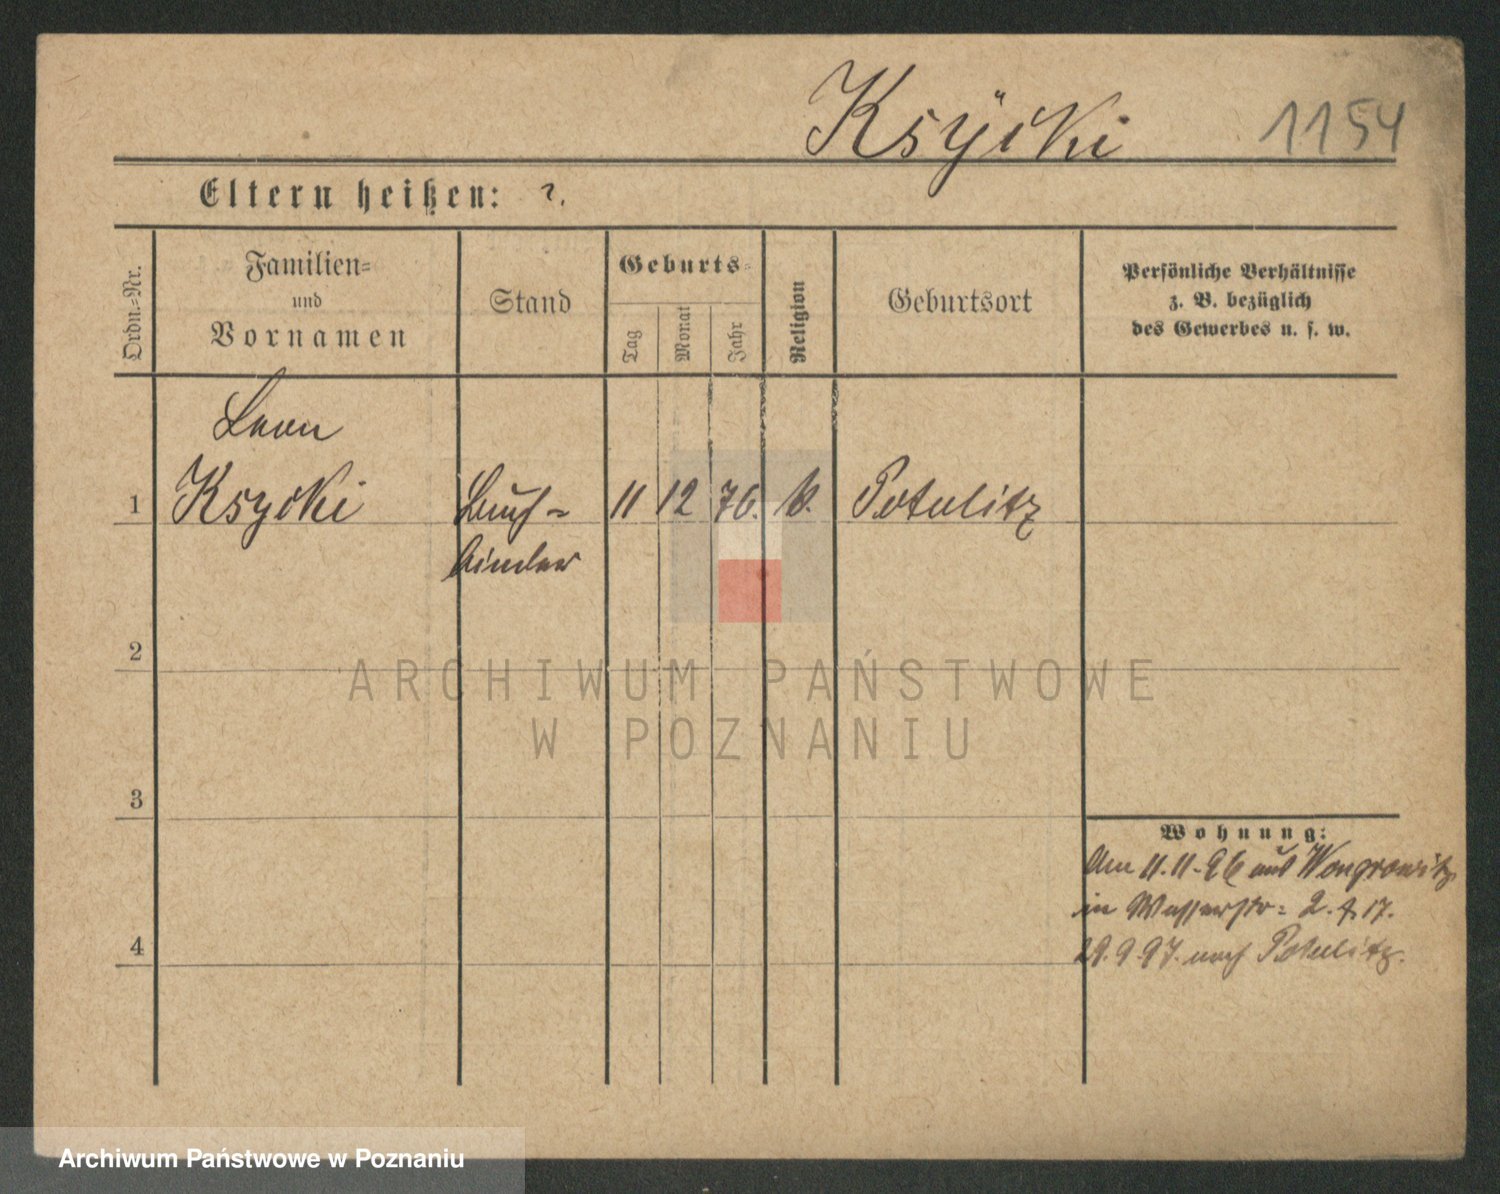 Ksÿcki 1154
Eltern heißen: ?.
Ordn.=Nr.
Familien=
und
Vornamen
Stand
Geburts=
Tag
Monat
Jahr
Religion
Geburtsort
Persönliche Verhältnisse
z. B. bezüglich
des Gewerbes u. s. w.
Leon
1 Ksycki Buch= 11 12 76. k. Potulitz
binder
2
ARCHIWUM PAŃSTWOWE
W POZNANIU
3
Wohnung:
Am 11.11.96 aus Wongrowitz
in Wasserstr= 2. 17.
4
29.9.97. nach Potulitz.
Archiwum Państwowe w Poznaniu